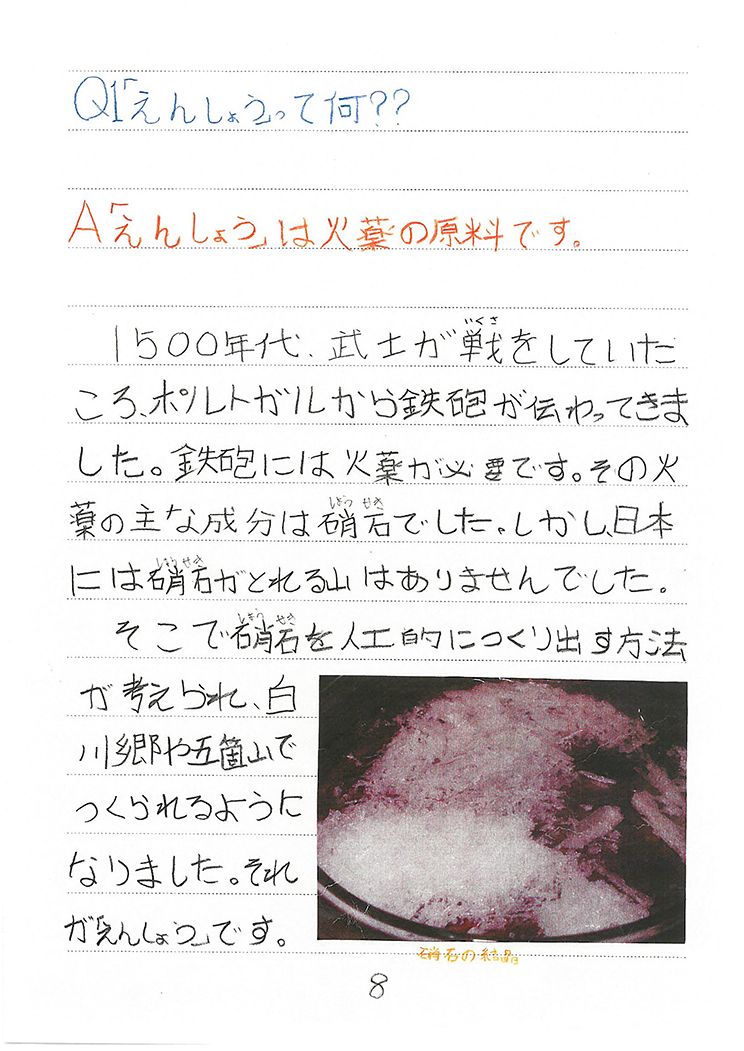 Q1「えんしょう」って何??
A「えんしょう」は火薬の原料です。
いくさ
1500年代、武士が戦をしていた
ころ、ポルトガルから鉄砲が伝わってきま
した。鉄砲には火薬が必要です。その火
しょう せき
薬の主な成分は硝石でした。しかし、日本
しょう せき
には硝石がとれる山はありませんでした。
しょう せき
そこで硝石を人工的につくり出す方法
が考えられ、白
川郷や五箇山で
つくられるように
なりました。それ
が「えんしょう」です。
硝石の結晶
8